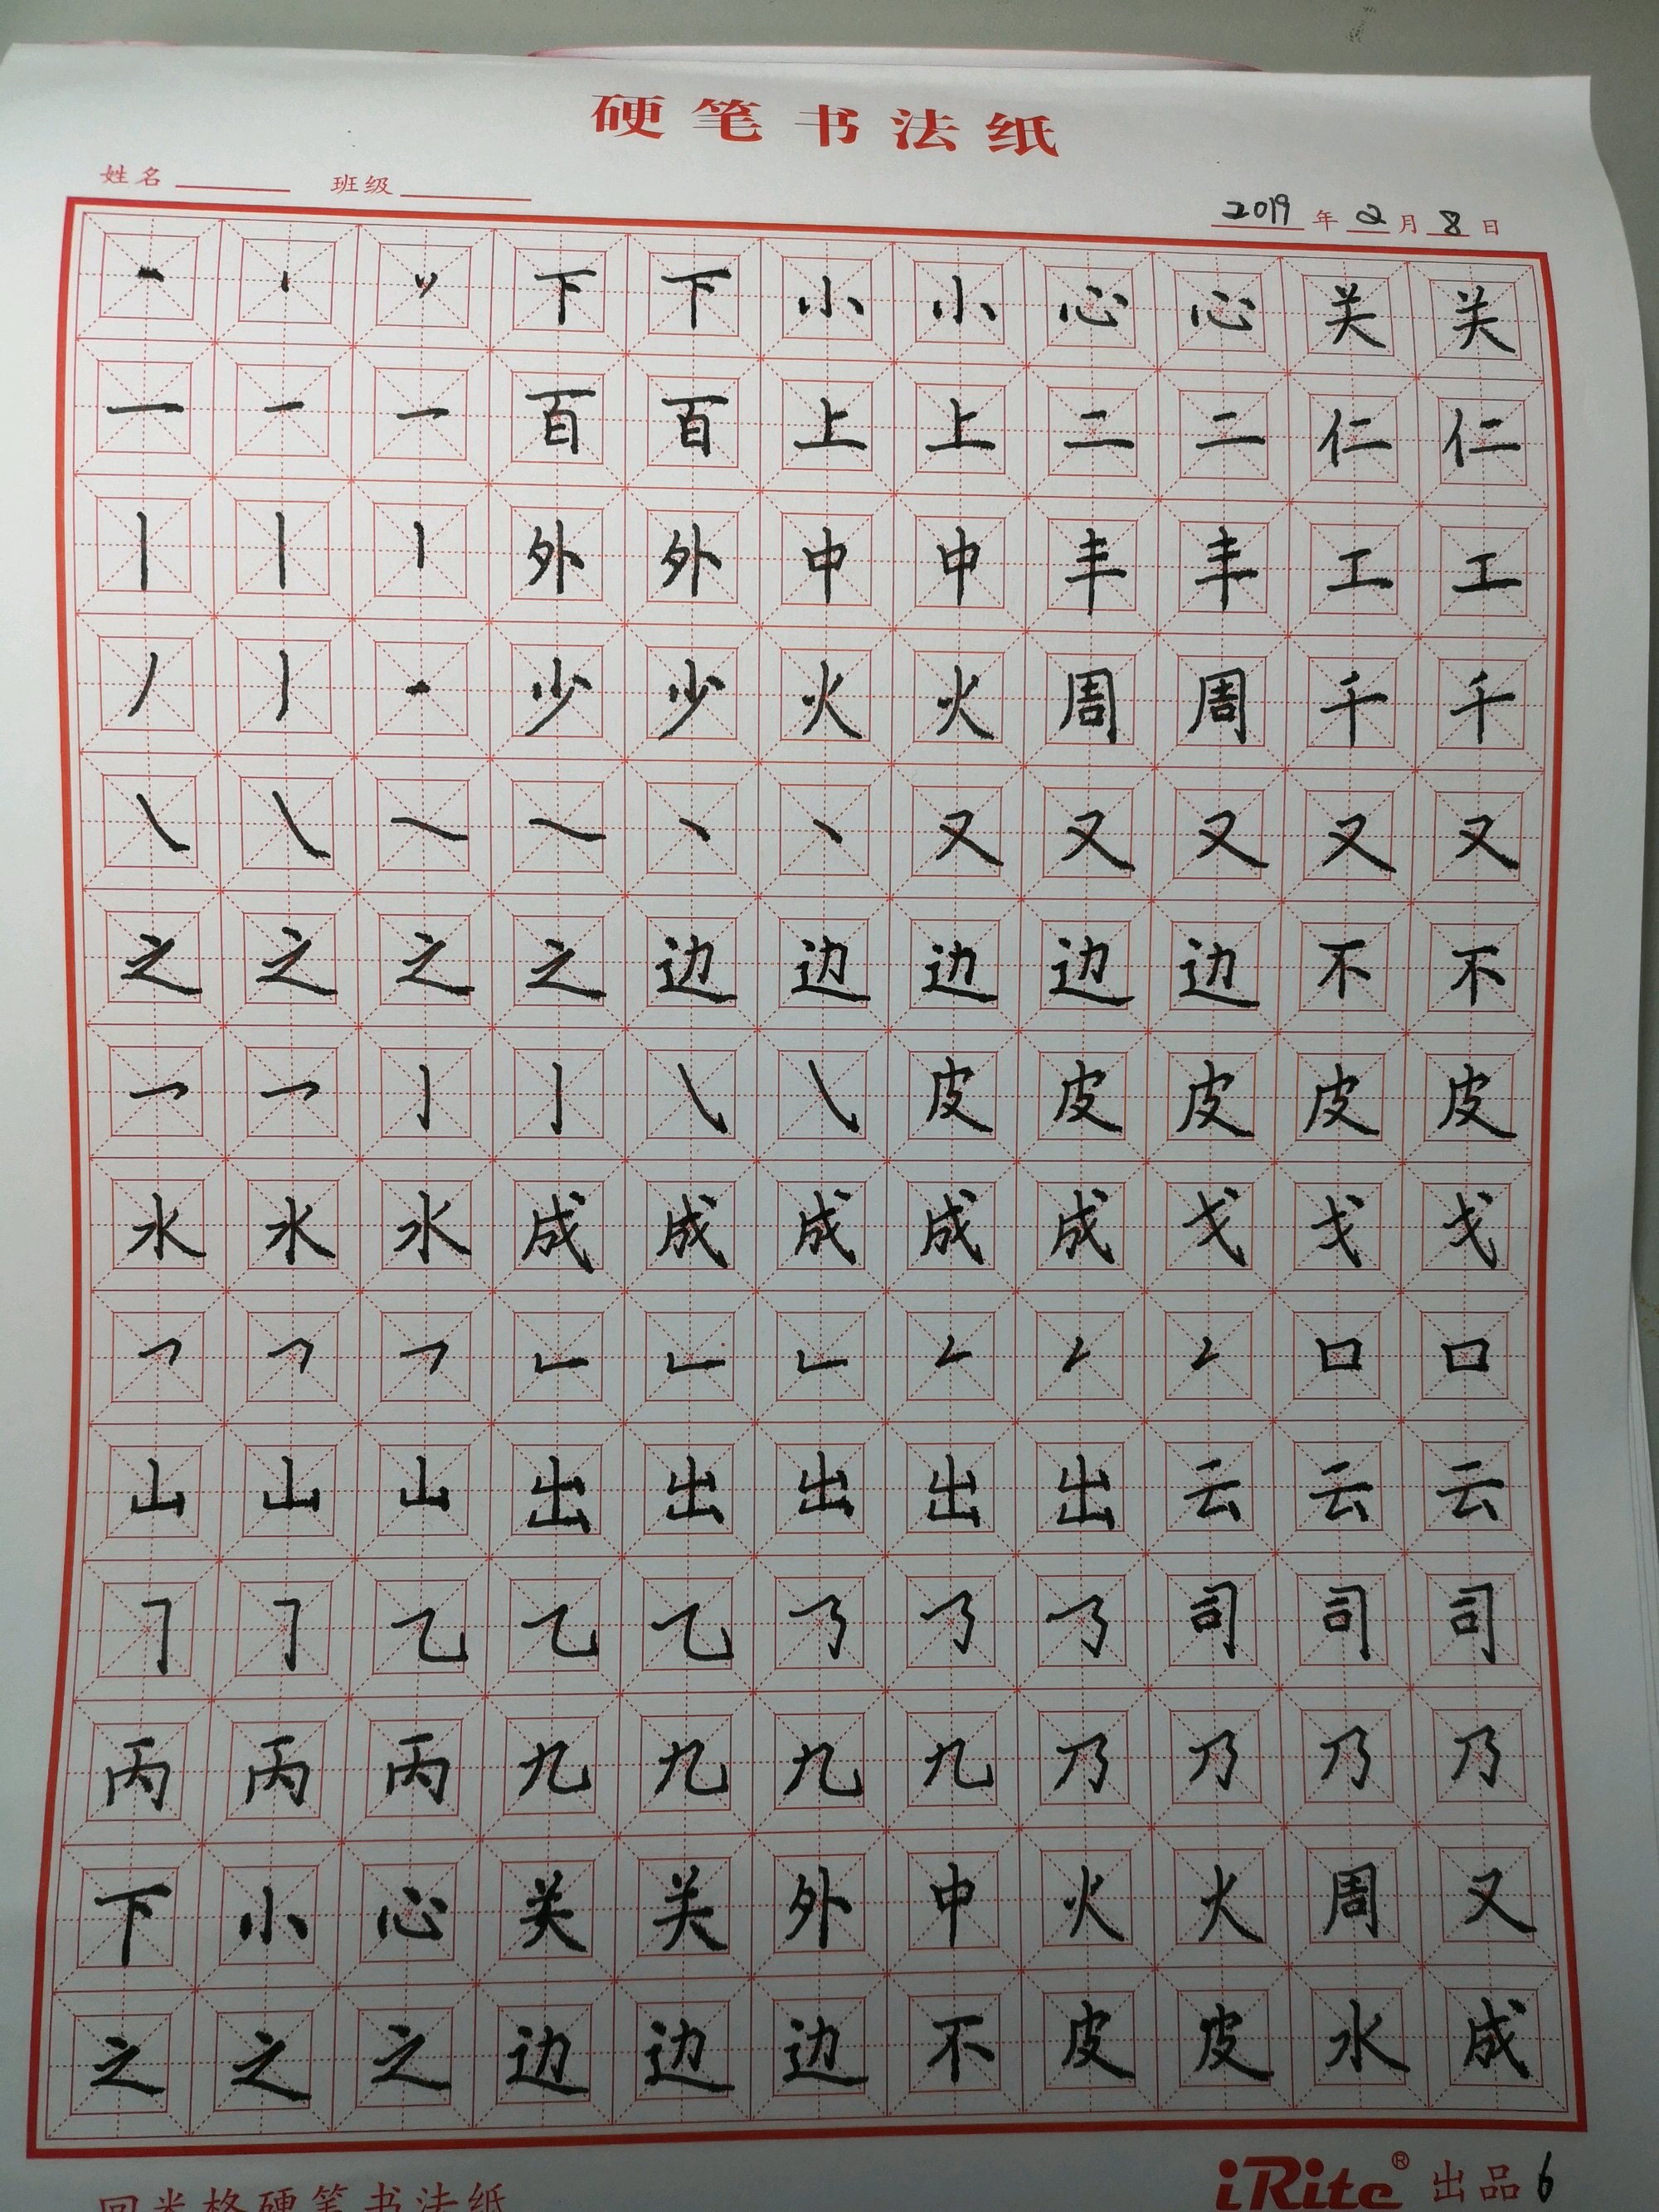 硬笔书法纸
姓名 班级 2019年2月8日
丶 丶 丷 下 下 小 小 心 心 关 关
一 一 一 百 百 上 上 二 二 仁 仁
丨 丨 丨 外 外 中 中 丰 丰 工 工
丿 丿 少 少 火 火 周 周 千 千
㇏ ㇏ ㇏ ㇏ 丶 丶 又 又 又 又 又
之 之 之 之 边 边 边 边 边 不 不
乛 乛 亅 亅 ㇂ ㇂ 皮 皮 皮 皮 皮
水 水 水 成 成 成 成 成 戈 戈 戈
㇕ ㇕ ㇕ ㇗ ㇗ ㇗ ㇜ ㇜ ㇜ 口 口
山 山 山 出 出 出 出 出 云 云 云
㇆ ㇆ 乙 乙 乙 ㇡ ㇡ ㇡ 司 司 司
丙 丙 丙 九 九 九 九 乃 乃 乃 乃
下 小 心 关 关 外 中 火 火 周 又
之 之 之 边 边 边 不 皮 皮 水 成
回米格硬笔书法纸 iRite® 出品 6